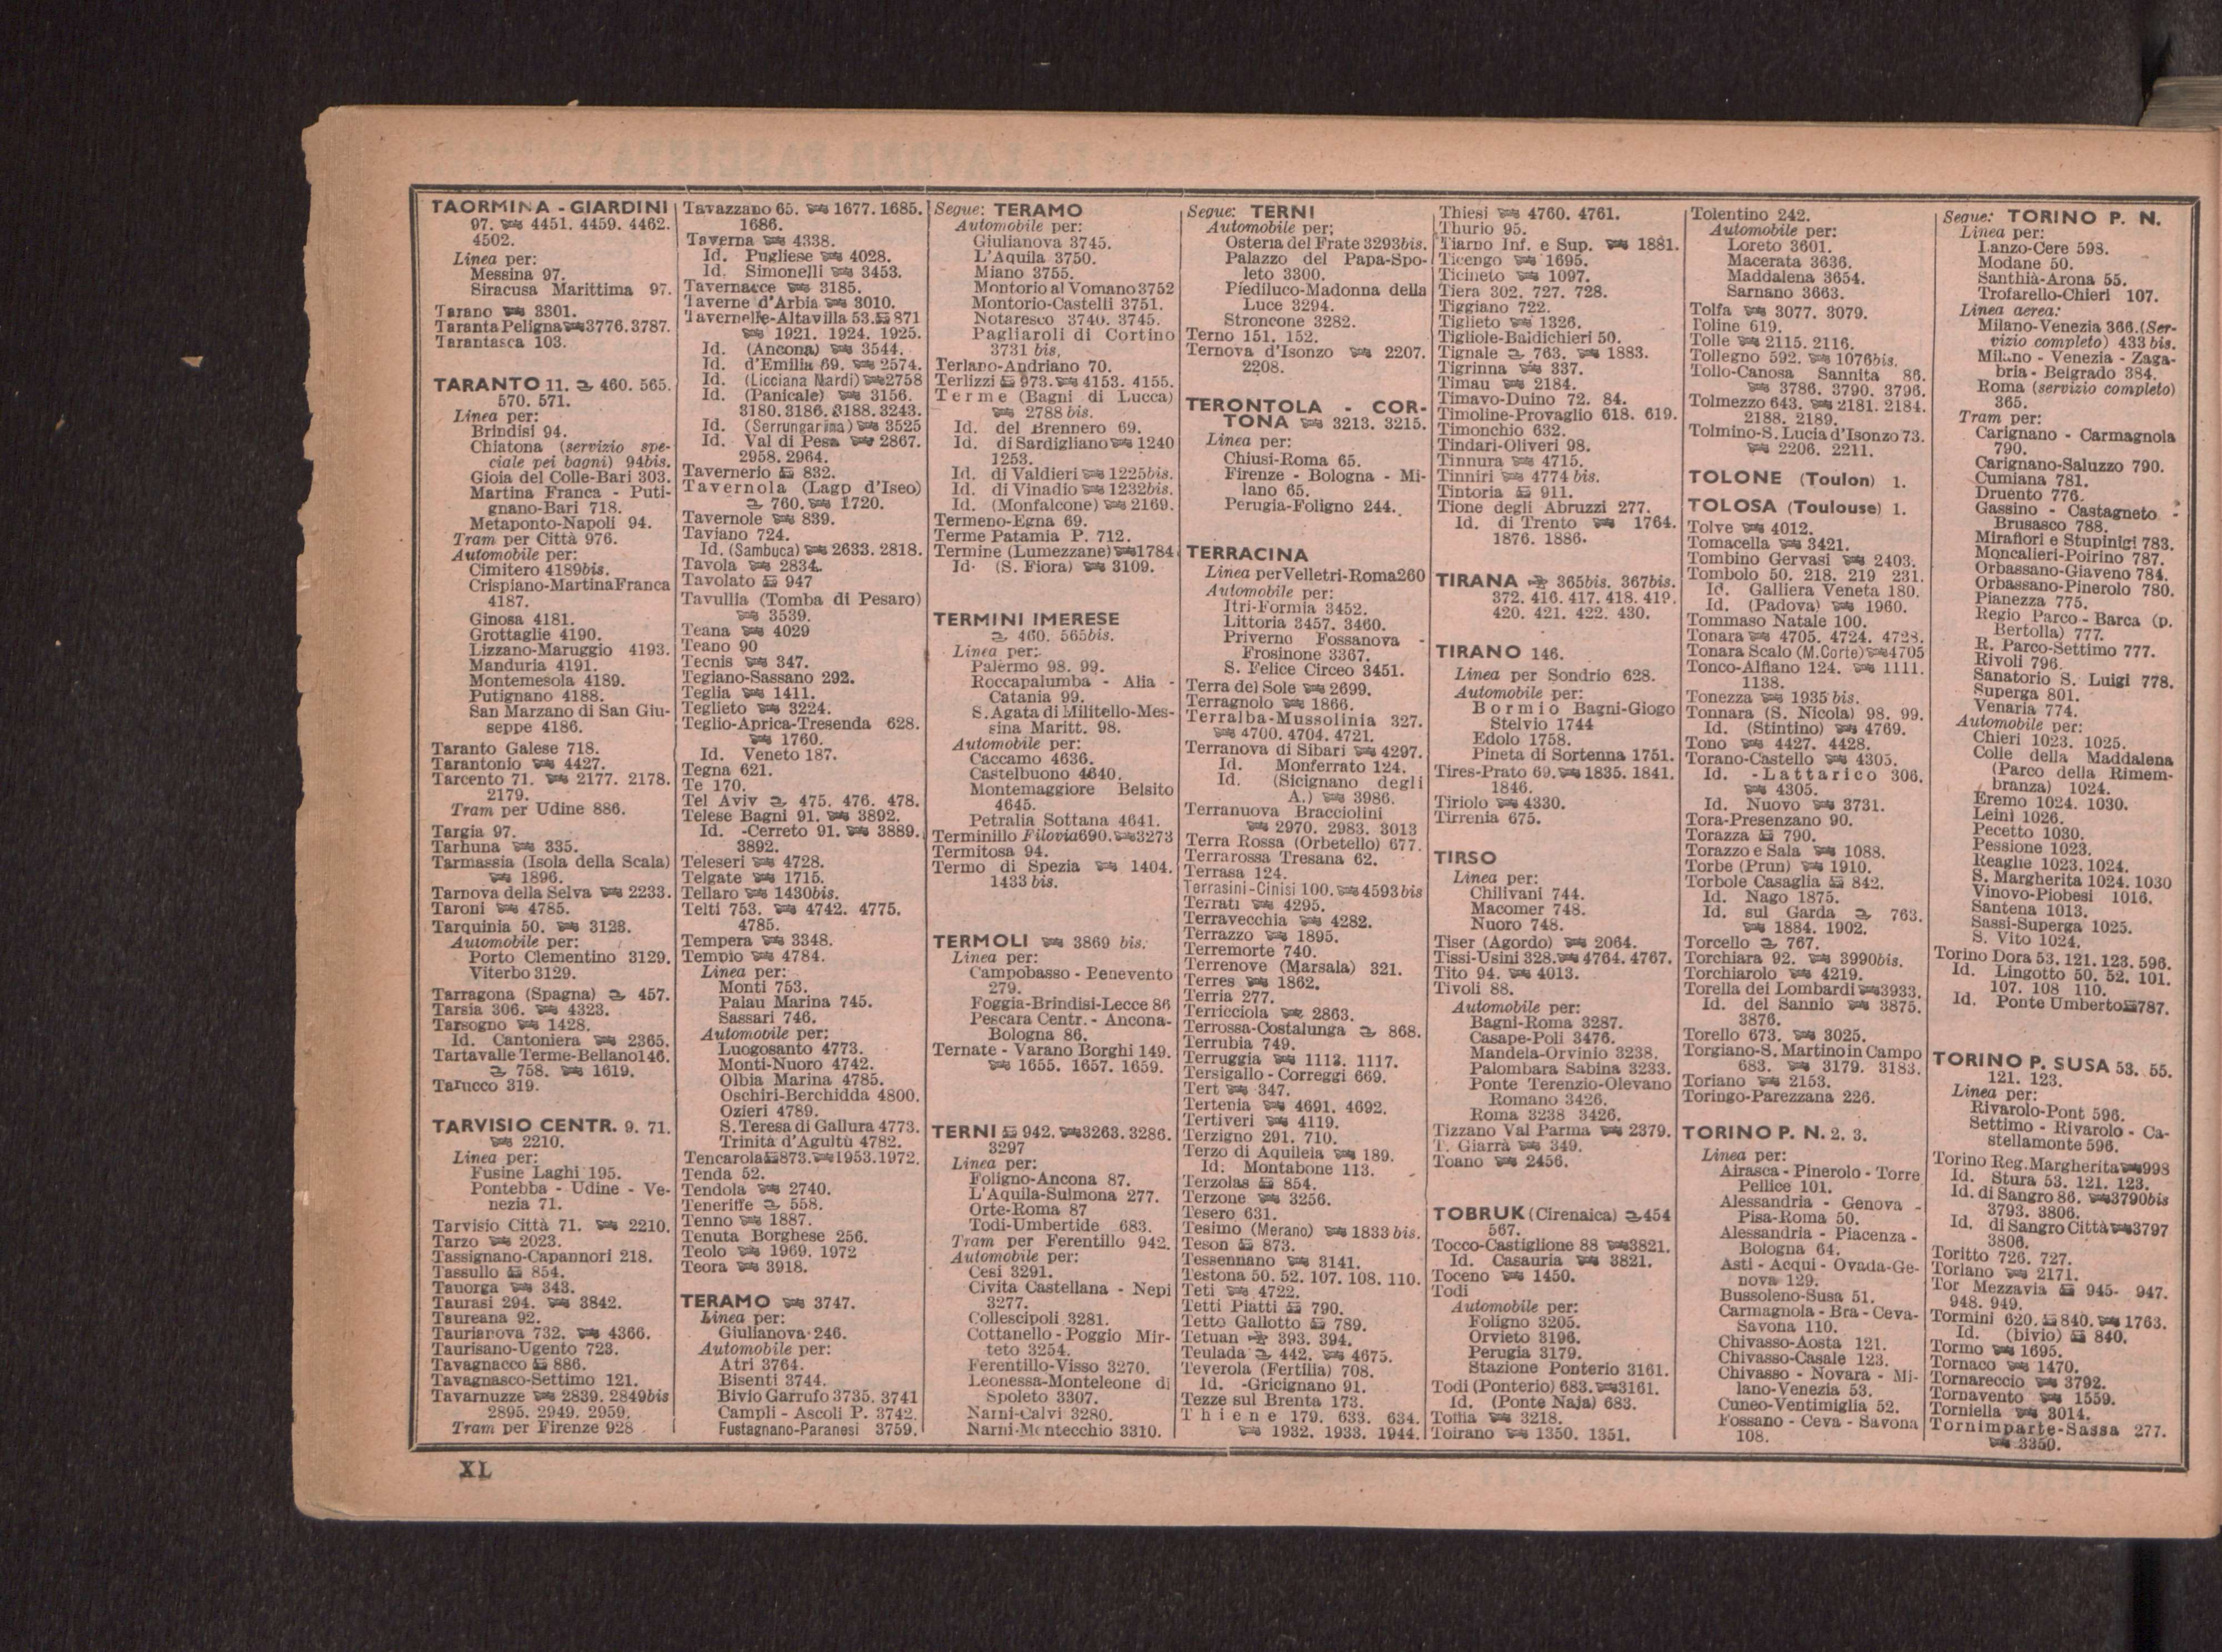 TAORMINA - GIARDINI
97. 4451. 4459. 4462.
4502.
Linea per:
Messina 97.
Siracusa Marittima 97.
Tarano 3301.
Taranta Peligna 3776. 3787.
Tarantasca 103.
TARANTO 11. 460. 565.
570. 571.
Linea per:
Brindisi 94.
Chiatona (servizio spe-
ciale pei bagni) 94bis.
Gioia del Colle-Bari 303.
Martina Franca - Puti-
gnano-Bari 718.
Metaponto-Napoli 94.
Tram per Città 976.
Automobile per:
Cimitero 4189bis.
Crispiano-Martina Franca
4187.
Ginosa 4181.
Grottaglie 4190.
Lizzano-Maruggio 4193.
Manduria 4191.
Montemesola 4189.
Putignano 4188.
San Marzano di San Giu-
seppe 4186.
Taranto Galese 718.
Tarantonio 4427.
Tarcento 71. 2177. 2178.
2179.
Tram per Udine 886.
Targia 97.
Tarhuna 335.
Tarmassia (Isola della Scala)
1896.
Tarnova della Selva 2233.
Taroni 4785.
Tarquinia 50. 3128.
Automobile per:
Porto Clementino 3129.
Viterbo 3129.
Tarragona (Spagna) 457.
Tarsia 306. 4323.
Tarsogno 1428.
Id. Cantoniera 2365.
Tartavalle Terme-Bellano 146.
758. 1619.
Tarucco 319.
TARVISIO CENTR. 9. 71.
2210.
Linea per:
Fusine Laghi 195.
Pontebba - Udine - Ve-
nezia 71.
Tarvisio Città 71. 2210.
Tarzo 2023.
Tassignano-Capannori 218.
Tassullo 854.
Tauorga 343.
Taurasi 294. 3842.
Taureana 92.
Taurianova 732. 4366.
Taurisano-Ugento 723.
Tavagnacco 886.
Tavagnasco-Settimo 121.
Tavarnuzze 2839. 2849bis
2895. 2949. 2959.
Tram per Firenze 928
Tavazzano 65. 1677. 1685.
1686.
Taverna 4338.
Id. Pugliese 4028.
Id. Simonelli 3453.
Tavernacce 3185.
Taverne d'Arbia 3010.
Tavernelle-Altavilla 53. 871
1921. 1924. 1925.
Id. (Ancona) 3544.
Id. d'Emilia 69. 2574.
Id. (Licciana Nardi) 2758
Id. (Panicale) 3156.
3180. 3186. 3188. 3243.
Id. (Serrungarina) 3525
Id. Val di Pesa 2867.
2958. 2964.
Tavernerio 832.
Tavernola (Lago d'Iseo)
760. 1720.
Tavernole 839.
Taviano 724.
Id. (Sambuca) 2633. 2818.
Tavola 2834.
Tavolato 947
Tavullia (Tomba di Pesaro)
3539.
Teana 4029
Teano 90
Tecnis 347.
Tegiano-Sassano 292.
Teglia 1411.
Teglieto 3224.
Teglio-Aprica-Tresenda 628.
1760.
Id. Veneto 187.
Tegna 621.
Te 170.
Tel Aviv 475. 476. 478.
Telese Bagni 91. 3892.
Id. -Cerreto 91. 3889.
3892.
Teleseri 4728.
Telgate 1715.
Tellaro 1430bis.
Telti 753. 4742. 4775.
4785.
Tempera 3348.
Tempio 4784.
Linea per:
Monti 753.
Palau Marina 745.
Sassari 746.
Automobile per:
Luogosanto 4773.
Monti-Nuoro 4742.
Olbia Marina 4785.
Oschiri-Berchidda 4800.
Ozieri 4789.
S. Teresa di Gallura 4773.
Trinità d'Agultù 4782.
Tencarola 873. 1953. 1972.
Tenda 52.
Tendola 2740.
Teneriffe 558.
Tenno 1887.
Tenuta Borghese 256.
Teolo 1969. 1972
Teora 3918.
TERAMO 3747.
Linea per:
Giulianova 246.
Automobile per:
Atri 3764.
Bisenti 3744.
Bivio Garrufo 3735. 3741
Campli - Ascoli P. 3742.
Fustagnano-Paranesi 3759.
Segue: TERAMO
Automobile per:
Giulianova 3745.
L'Aquila 3750.
Miano 3755.
Montorio al Vomano 3752
Montorio-Castelli 3751.
Notaresco 3740. 3745.
Pagliaroli di Cortino
3731 bis.
Terlano-Andriano 70.
Terlizzi 973. 4153. 4155.
Terme (Bagni di Lucca)
2788 bis.
Id. del Brennero 69.
Id. di Sardigliano 1240
1253.
Id. di Valdieri 1225bis.
Id. di Vinadio 1232bis.
Id. (Monfalcone) 2169.
Termeno-Egna 69.
Terme Patamia P. 712.
Termine (Lumezzane) 1784
Id. (S. Fiora) 3109.
TERMINI IMERESE
460. 565bis.
Linea per:
Palermo 98. 99.
Roccapalumba - Alia -
Catania 99.
S. Agata di Militello-Mes-
sina Maritt. 98.
Automobile per:
Caccamo 4636.
Castelbuono 4640.
Montemaggiore Belsito
4645.
Petralia Sottana 4641.
Terminillo Filovia 690. 3273
Termitosa 94.
Termo di Spezia 1404.
1433 bis.
TERMOLI 3869 bis.
Linea per:
Campobasso - Benevento
279.
Foggia-Brindisi-Lecce 86
Pescara Centr. - Ancona-
Bologna 86.
Ternate - Varano Borghi 149.
1655. 1657. 1659.
TERNI 942. 3263. 3286.
3297
Linea per:
Foligno-Ancona 87.
L'Aquila-Sulmona 277.
Orte-Roma 87
Todi-Umbertide 683.
Tram per Ferentillo 942.
Automobile per:
Cesi 3291.
Civita Castellana - Nepi
3277.
Collescipoli 3281.
Cottanello - Poggio Mir-
teto 3254.
Ferentillo-Visso 3270.
Leonessa-Monteleone di
Spoleto 3307.
Narni-Calvi 3280.
Narni-Montecchio 3310.
Segue: TERNI
Automobile per:
Osteria del Frate 3293bis.
Palazzo del Papa-Spo-
leto 3300.
Piediluco-Madonna della
Luce 3294.
Stroncone 3282.
Terno 151. 152.
Ternova d'Isonzo 2207.
2208.
TERONTOLA - COR-
TONA 3213. 3215.
Linea per:
Chiusi-Roma 65.
Firenze - Bologna - Mi-
lano 65.
Perugia-Foligno 244.
TERRACINA
Linea per Velletri-Roma 260
Automobile per:
Itri-Formia 3452.
Littoria 3457. 3460.
Priverno Fossanova -
Frosinone 3367.
S. Felice Circeo 3451.
Terra del Sole 2699.
Terragnolo 1866.
Terralba-Mussolinia 327.
4700. 4704. 4721.
Terranova di Sibari 4297.
Id. Monferrato 124.
Id. (Sicignano degli
A.) 3986.
Terranuova Bracciolini
2970. 2983. 3013
Terra Rossa (Orbetello) 677.
Terrarossa Tresana 62.
Terrasa 124.
Terrasini-Cinisi 100. 4593bis
Terrati 4295.
Terravecchia 4282.
Terrazzo 1895.
Terremorte 740.
Terrenove (Marsala) 321.
Terres 1862.
Terria 277.
Terricciola 2863.
Terrossa-Costalunga 868.
Terrubia 749.
Terruggia 1112. 1117.
Tersigallo - Correggi 669.
Tert 347.
Tertenia 4691. 4692.
Tertiveri 4119.
Terzigno 291. 710.
Terzo di Aquileia 189.
Id. Montabone 113.
Terzolas 854.
Terzone 3256.
Tesero 631.
Tesimo (Merano) 1833 bis.
Teson 873.
Tessennano 3141.
Testona 50. 52. 107. 108. 110.
Teti 4722.
Tetti Piatti 790.
Tetto Gallotto 789.
Tetuan 393. 394.
Teulada 442. 4675.
Teverola (Fertilia) 708.
Id. -Gricignano 91.
Tezze sul Brenta 173.
Thiene 179. 633. 634.
1932. 1933. 1944.
Thiesi 4760. 4761.
Thurio 95.
Tiarno Inf. e Sup. 1881.
Ticengo 1695.
Ticineto 1097.
Tiera 302. 727. 728.
Tiggiano 722.
Tiglieto 1326.
Tigliole-Baldichieri 50.
Tignale 763. 1883.
Tigrinna 337.
Timau 2184.
Timavo-Duino 72. 84.
Timoline-Provaglio 618. 619.
Timonchio 632.
Tindari-Oliveri 98.
Tinnura 4715.
Tinniri 4774 bis.
Tintoria 911.
Tione degli Abruzzi 277.
Id. di Trento 1764.
1876. 1886.
TIRANA 365bis. 367bis.
372. 416. 417. 418. 419.
420. 421. 422. 430.
TIRANO 146.
Linea per Sondrio 628.
Automobile per:
Bormio Bagni-Giogo
Stelvio 1744
Edolo 1758.
Pineta di Sortenna 1751.
Tires-Prato 69. 1835. 1841.
1846.
Tiriolo 4330.
Tirrenia 675.
TIRSO
Linea per:
Chilivani 744.
Macomer 748.
Nuoro 748.
Tiser (Agordo) 2064.
Tissi-Usini 328. 4764. 4767.
Tito 94. 4013.
Tivoli 88.
Automobile per:
Bagni-Roma 3287.
Casape-Poli 3476.
Mandela-Orvinio 3238.
Palombara Sabina 3233.
Ponte Terenzio-Olevano
Romano 3426.
Roma 3238 3426.
Tizzano Val Parma 2379.
T. Giarrà 349.
Toano 2456.
TOBRUK (Cirenaica) 454
567.
Tocco-Castiglione 88 3821.
Id. Casauria 3821.
Toceno 1450.
Todi
Automobile per:
Foligno 3205.
Orvieto 3196.
Perugia 3179.
Stazione Ponterio 3161.
Todi (Ponterio) 683. 3161.
Id. (Ponte Naja) 683.
Toffia 3218.
Toirano 1350. 1351.
Tolentino 242.
Automobile per:
Loreto 3601.
Macerata 3636.
Maddalena 3654.
Sarnano 3663.
Tolfa 3077. 3079.
Toline 619.
Tolle 2115. 2116.
Tollegno 592. 1076bis.
Tollo-Canosa Sannita 86.
3786. 3790. 3796.
Tolmezzo 643. 2181. 2184.
2188. 2189.
Tolmino-S. Lucia d'Isonzo 73.
2206. 2211.
TOLONE (Toulon) 1.
TOLOSA (Toulouse) 1.
Tolve 4012.
Tomacella 3421.
Tombino Gervasi 2403.
Tombolo 50. 218. 219 231.
Id. Galliera Veneta 180.
Id. (Padova) 1960.
Tommaso Natale 100.
Tonara 4705. 4724. 4728.
Tonara Scalo (M. Corte) 4705
Tonco-Alfiano 124. 1111.
1138.
Tonezza 1935 bis.
Tonnara (S. Nicola) 98. 99.
Id. (Stintino) 4769.
Tono 4427. 4428.
Torano-Castello 4305.
Id. -Lattarico 306.
4305.
Id. Nuovo 3731.
Tora-Presenzano 90.
Torazza 790.
Torazzo e Sala 1088.
Torbe (Prun) 1910.
Torbole Casaglia 842.
Id. Nago 1875.
Id. sul Garda 763.
1884. 1902.
Torcello 767.
Torchiara 92. 3990bis.
Torchiarolo 4219.
Torella dei Lombardi 3933.
Id. del Sannio 3875.
3876.
Torello 673. 3025.
Torgiano-S. Martino in Campo
683. 3179. 3183.
Toriano 2153.
Toringo-Parezzana 226.
TORINO P. N. 2. 3.
Linea per:
Airasca - Pinerolo - Torre
Pellice 101.
Alessandria - Genova -
Pisa-Roma 50.
Alessandria - Piacenza -
Bologna 64.
Asti - Acqui - Ovada-Ge-
nova 129.
Bussoleno-Susa 51.
Carmagnola - Bra - Ceva-
Savona 110.
Chivasso-Aosta 121.
Chivasso-Casale 123.
Chivasso - Novara - Mi-
lano-Venezia 53.
Cuneo-Ventimiglia 52.
Fossano - Ceva - Savona
108.
Segue: TORINO P. N.
Linea per:
Lanzo-Cere 598.
Modane 50.
Santhià-Arona 55.
Trofarello-Chieri 107.
Linea aerea:
Milano-Venezia 366. (Ser-
vizio completo) 433 bis.
Milano - Venezia - Zaga-
bria - Belgrado 384.
Roma (servizio completo)
365.
Tram per:
Carignano - Carmagnola
790.
Carignano-Saluzzo 790.
Cumiana 781.
Druento 776.
Gassino - Castagneto -
Brusasco 788.
Mirafiori e Stupinigi 783.
Moncalieri-Poirino 787.
Orbassano-Giaveno 784.
Orbassano-Pinerolo 780.
Pianezza 775.
Regio Parco - Barca (p.
Bertolla) 777.
R. Parco-Settimo 777.
Rivoli 796.
Sanatorio S. Luigi 778.
Superga 801.
Venaria 774.
Automobile per:
Chieri 1023. 1025.
Colle della Maddalena
(Parco della Rimem-
branza) 1024.
Eremo 1024. 1030.
Leinì 1026.
Pecetto 1030.
Pessione 1023.
Reaglie 1023. 1024.
S. Margherita 1024. 1030
Vinovo-Piobesi 1016.
Santena 1013.
Sassi-Superga 1025.
S. Vito 1024.
Torino Dora 53. 121. 123. 596.
Id. Lingotto 50. 52. 101.
107. 108 110.
Id. Ponte Umberto 787.
TORINO P. SUSA 53. 55.
121. 123.
Linea per:
Rivarolo-Pont 596.
Settimo - Rivarolo - Ca-
stellamonte 596.
Torino Reg. Margherita 998
Id. Stura 53. 121. 123.
Id. di Sangro 86. 3790bis
3793. 3806.
Id. di Sangro Città 3797
3806.
Toritto 726. 727.
Torlano 2171.
Tor Mezzavia 945- 947.
948. 949.
Tormini 620. 840. 1763.
Id. (bivio) 840.
Tormo 1695.
Tornaco 1470.
Tornareccio 3792.
Tornavento 1559.
Torniella 3014.
Tornimparte-Sassa 277.
3350.
XL